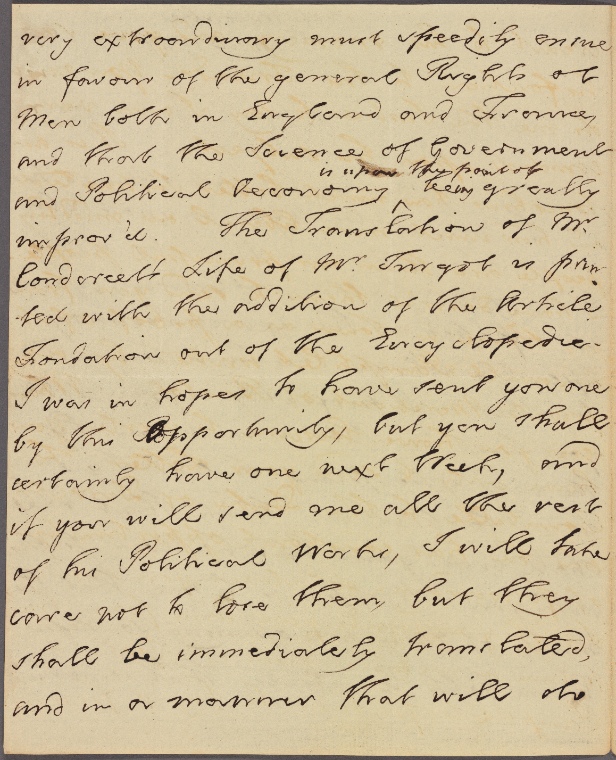 very extraordinary must speedily ensue
in favour of the general Rights of
Men both in England and France,
and that the Science of Government
is upon the point of
and Political Oeconomy ^ being greally
improv'd. The Translation of Mr.
Condorcet's Life of Mr. Turgot is prin
-ted with the addition of the Article
Fondation out of the Encyclopedie.
I was in hopes to have sent you one
by this Opportunity, but you shall
certainly have one next Week, and
if you will send me all the rest
of his Political Works, I will take
care not to lose them, but they
shall be immediately translated,
and in a manner that will do